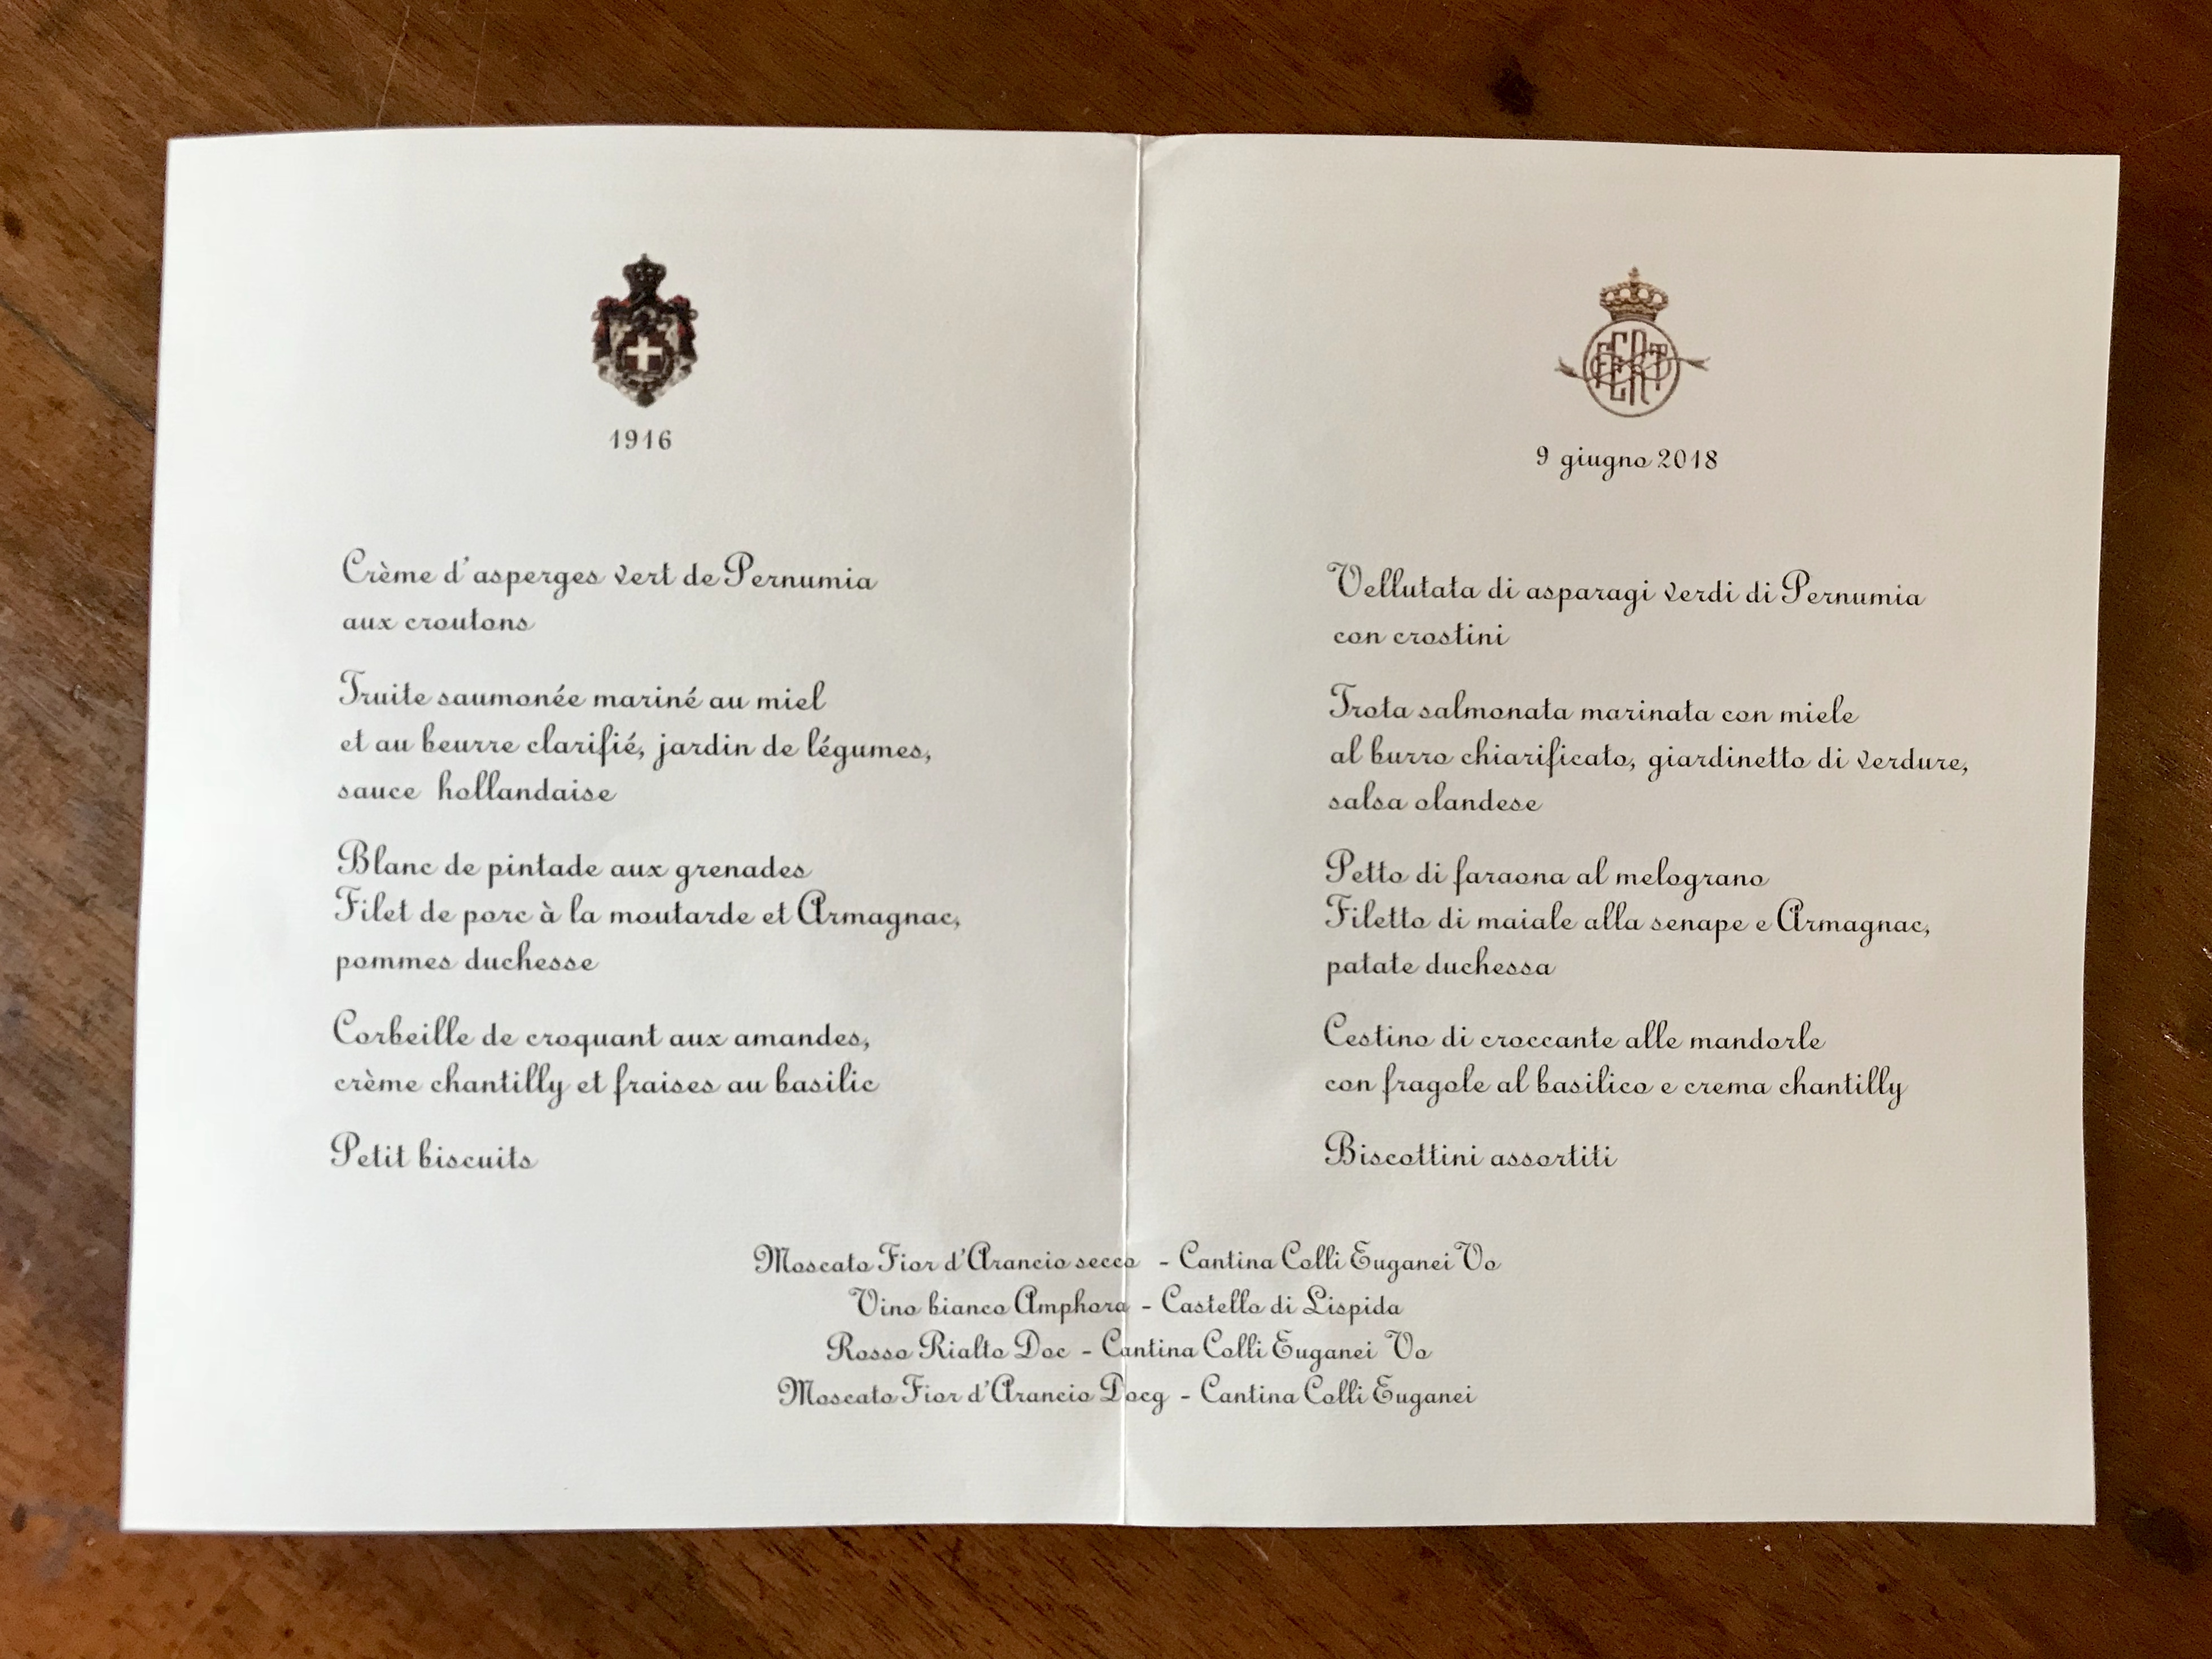 1916
Crème d'asperges vert de Pernumia
aux croutons
Truite saumonée mariné au miel
et au beurre clarifié, jardin de légumes,
sauce hollandaise
Blanc de pintade aux grenades
Filet de porc à la moutarde et Armagnac,
pommes duchesse
Corbeille de croquant aux amandes,
crème chantilly et fraises au basilic
Petit biscuits
FERT
9 giugno 2018
Vellutata di asparagi verdi di Pernumia
con crostini
Trota salmonata marinata con miele
al burro chiarificato, giardinetto di verdure,
salsa olandese
Petto di faraona al melograno
Filetto di maiale alla senape e Armagnac,
patate duchessa
Cestino di croccante alle mandorle
con fragole al basilico e crema chantilly
Biscottini assortiti
Moscato Fior d'Arancio secco - Cantina Colli Euganei Vo
Vino bianco Amphora - Castello di Lispida
Rosso Rialto Doc - Cantina Colli Euganei Vo
Moscato Fior d'Arancio Docg - Cantina Colli Euganei